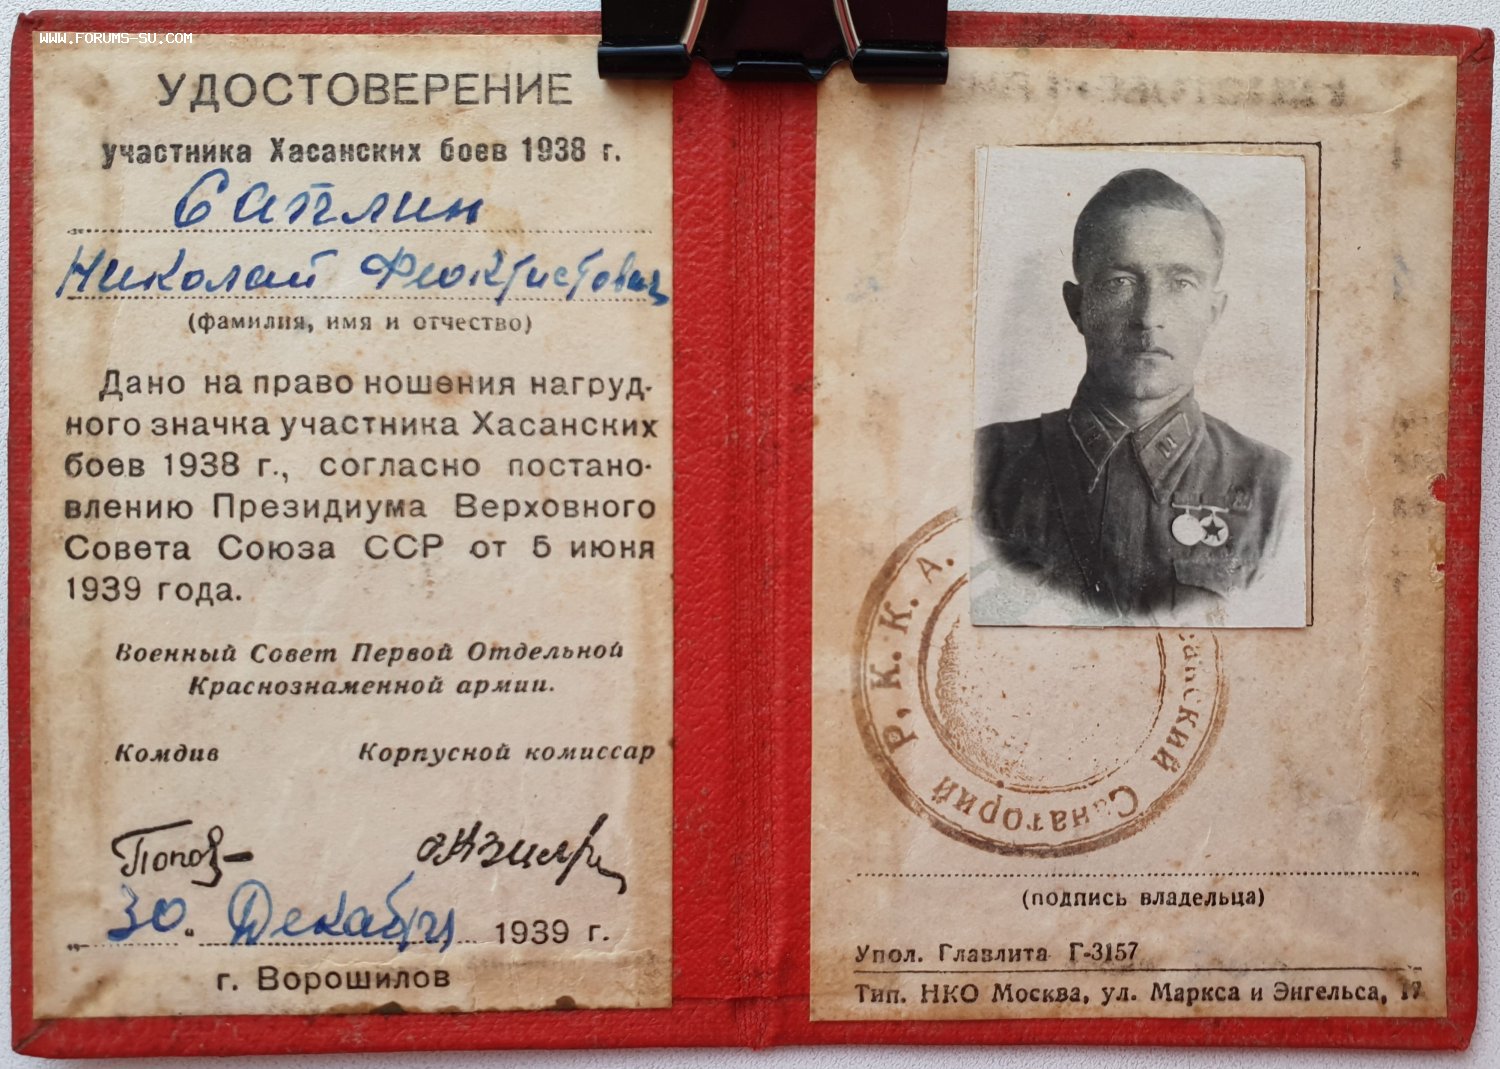 WWW.FORUMS-SU.COM
УДОСТОВЕРЕНИЕ
участника Хасанских боев 1938 г.
Саплин
Николай Феоктистович
(фамилия, имя и отчество)
Дано на право ношения нагруд-
ного значка участника Хасанских
боев 1938 г., согласно постано-
влению Президиума Верховного
Совета Союза ССР от 5 июня
1939 года.
Военный Совет Первой Отдельной
Краснознаменной армии.
Комдив Корпусной комиссар
Попов
„30“ Декабря 1939 г.
г. Ворошилов
Р.К.К.А.
Санаторий
(подпись владельца)
Упол. Главлита Г-3157
Тип. НКО Москва, ул. Маркса и Энгельса, 17